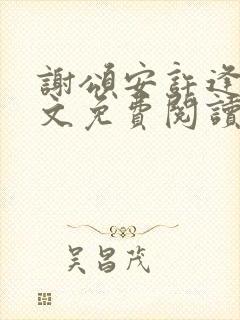 謝頌安許逢
文免費閱讀
吴昌茂